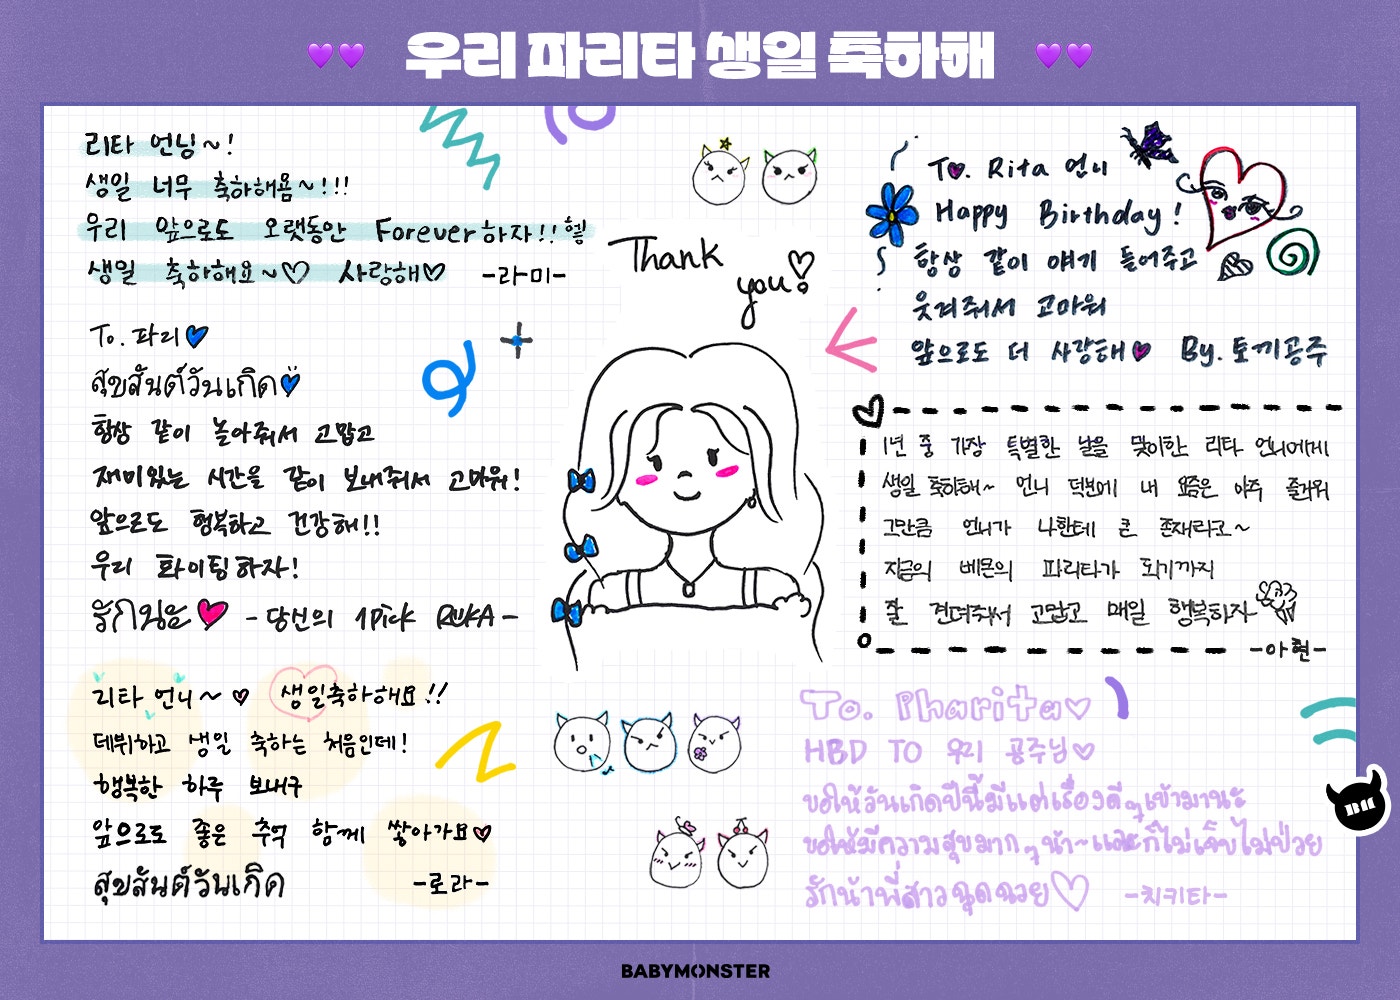 우리 파리타 생일 축하해
리타 언닝~!
생일 너무 축하해욤~!!!
우리 앞으로도 오랫동안 Forever하자!! 헿
생일 축하해요~♡ 사랑해♡ -라미-
To. 파리
สุขสันต์วันเกิด
항상 같이 놀아줘서 고맙고
재미있는 시간을 같이 보내줘서 고마워!
앞으로도 행복하고 건강해!!
우리 화이팅하자!
- 당신의 1pick RUKA -
리타 언니~ ♡ 생일축하해요!!
데뷔하고 생일 축하는 처음인데!
행복한 하루 보내구
앞으로도 좋은 추억 함께 쌓아가요♡
สุขสันต์วันเกิด -로라-
Thank
you!
To. Rita 언니
Happy Birthday!
항상 같이 얘기 들어주고
웃겨줘서 고마워
앞으로도 더 사랑해♥ By. 토끼공주
1년 중 가장 특별한 날을 맞이한 리타 언니에게
생일 축하해~ 언니 덕분에 내 요즘은 아주 즐거워
그만큼 언니가 나한테 큰 존재라구~
지금의 베몬의 파리타가 되기까지
잘 견뎌줘서 고맙고 매일 행복하자
-아현-
To. Pharita♡
HBD TO 우리 공주님♡
ขอให้วันเกิดปีนี้มีแต่เรื่องดีๆเข้ามานะ
ขอให้มีความสุขมากๆน้า~และก็ไม่เจ็บไม่ป่วย
รักน้าพี่สาวสุดสวย♡ -치키타-
BABYMONSTER